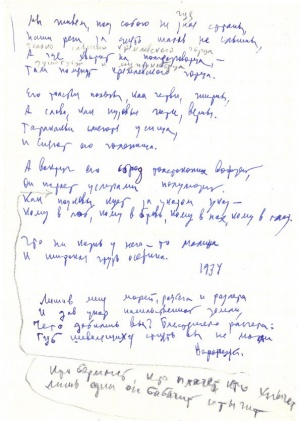 Мы живем, под собою не чуя страны,
Наши речи за десять шагов не слышны,
А где хватит на полразговорца —
Там помянут кремлевского горца.
Его толстые пальцы, как черви, жирны,
А слова, как пудовые гири, верны.
Тараканьи смеются усища,
И сияют его голенища.
А вокруг его сброд вождей,
Он играет услугами полулюдей.
Как подковы кует за указом указ —
Кому в лоб, кому в бровь, кому в пах, кому в глаз.
Что ни казнь у него — то малина
И широкая грудь осетина.
Лишив меня морей, разбега и разлета
И дав упор насильственной земли,
Чего добились вы? Блестящего расчета:
Губ шевелящихся отнять вы не могли
Воронеж.
Кто кто кто хнычет
Лишь один он бабачит и тычет